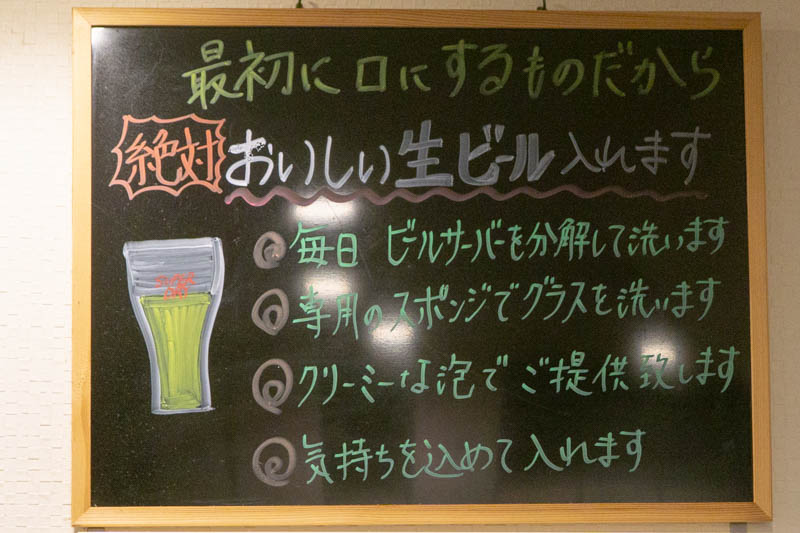 最初に口にするものだから
絶対 おいしい生ビール入れます
毎日 ビールサーバーを分解して洗います
専用のスポンジでグラスを洗います
クリーミーな泡でご提供致します
気持ちを込めて入れます